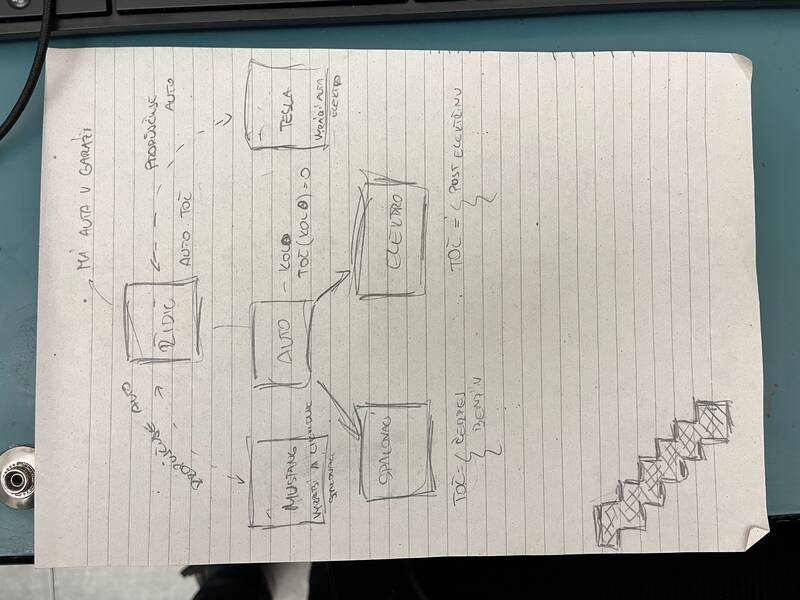 MÁ AUTA V GARÁŽI
PROPŮJČUJE AUTO
ŘIDIČ
PROPŮJČUJE
AUTO
AUTO.TOČ
MUSTANG
VYRÁBÍ A
SPALOVACÍ
AUTO
- KOLO
TOČ(KOLO)=0
TESLA
VYRÁBÍ AUTA
ELEKTRO
SPALOVACÍ
ELEKTRO
TOČ= { ČERPEJ
BENZÍN
TOČ = { POST ELEKTŘINU